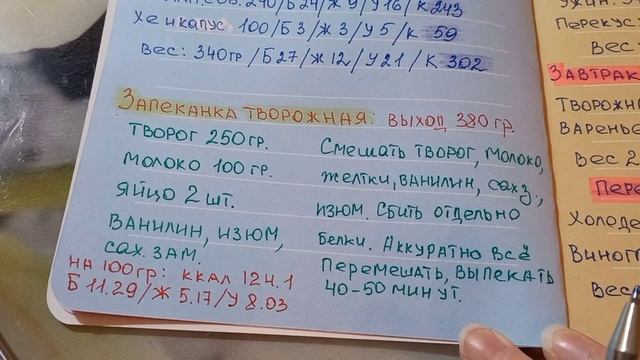 240/Б24/Ж9/У16/К 243
ХЕ И КАПУС 100/Б3/Ж3/У5/К 59
ВЕС: 340ГР/Б27/Ж12/У21/К 302
ЗАПЕКАНКА ТВОРОЖНАЯ: ВЫХОД 380 ГР.
ТВОРОГ 250 ГР.
МОЛОКО 100 ГР.
ЯЙЦО 2 ШТ.
ВАНИЛИН, ИЗЮМ,
САХ. ЗАМ.
НА 100ГР: ККАЛ 124.1
Б 11.29/Ж 5.17/У 8.03
СМЕШАТЬ ТВОРОГ, МОЛОКО,
ЖЕЛТКИ, ВАНИЛИН, САХ З.,
ИЗЮМ. СБИТЬ ОТДЕЛЬНО
БЕЛКИ. АККУРАТНО ВСЁ
ПЕРЕМЕШАТЬ, ВЫПЕКАТЬ
40-50 МИНУТ.
УЖИН:
ПЕРЕКУС
ВЕС
ЗАВТРАК
ТВОРОЖН
ВАРЕНЬЕ
ВЕС 2
ПЕРЕ
ХОЛОДЕ
ВИНОГ
ВЕС